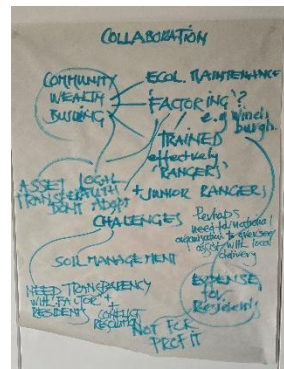 COLLABORATION
COMMUNITY
WEALTH
BUILDING
ECOL. MAINTENANCE
'FACTORING'?
e.g Winch
burgh.
TRAINED
effectively
'RANGERS'
+ JUNIOR RANGERS
ASSET
TRANSFER
LOCAL
AUTH
DON'T ADOPT
CHALENGES
Perhaps
need for national
organisation to oversee/
assist with local
delivery
SOIL MANAGEMENT
NEED TRANSPARENCY
WITH FACTOR +
RESIDENTS +
CONFLICT
RESOLUTION
EXPENSE
for
Residents
NOT FOR
PROFIT